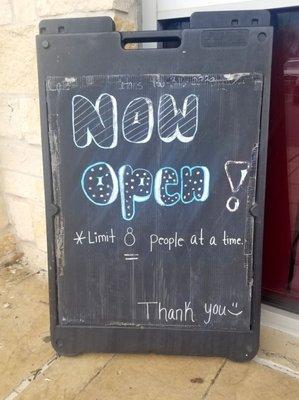 Now
Open!
*Limit 8 people at a time.
Thank you